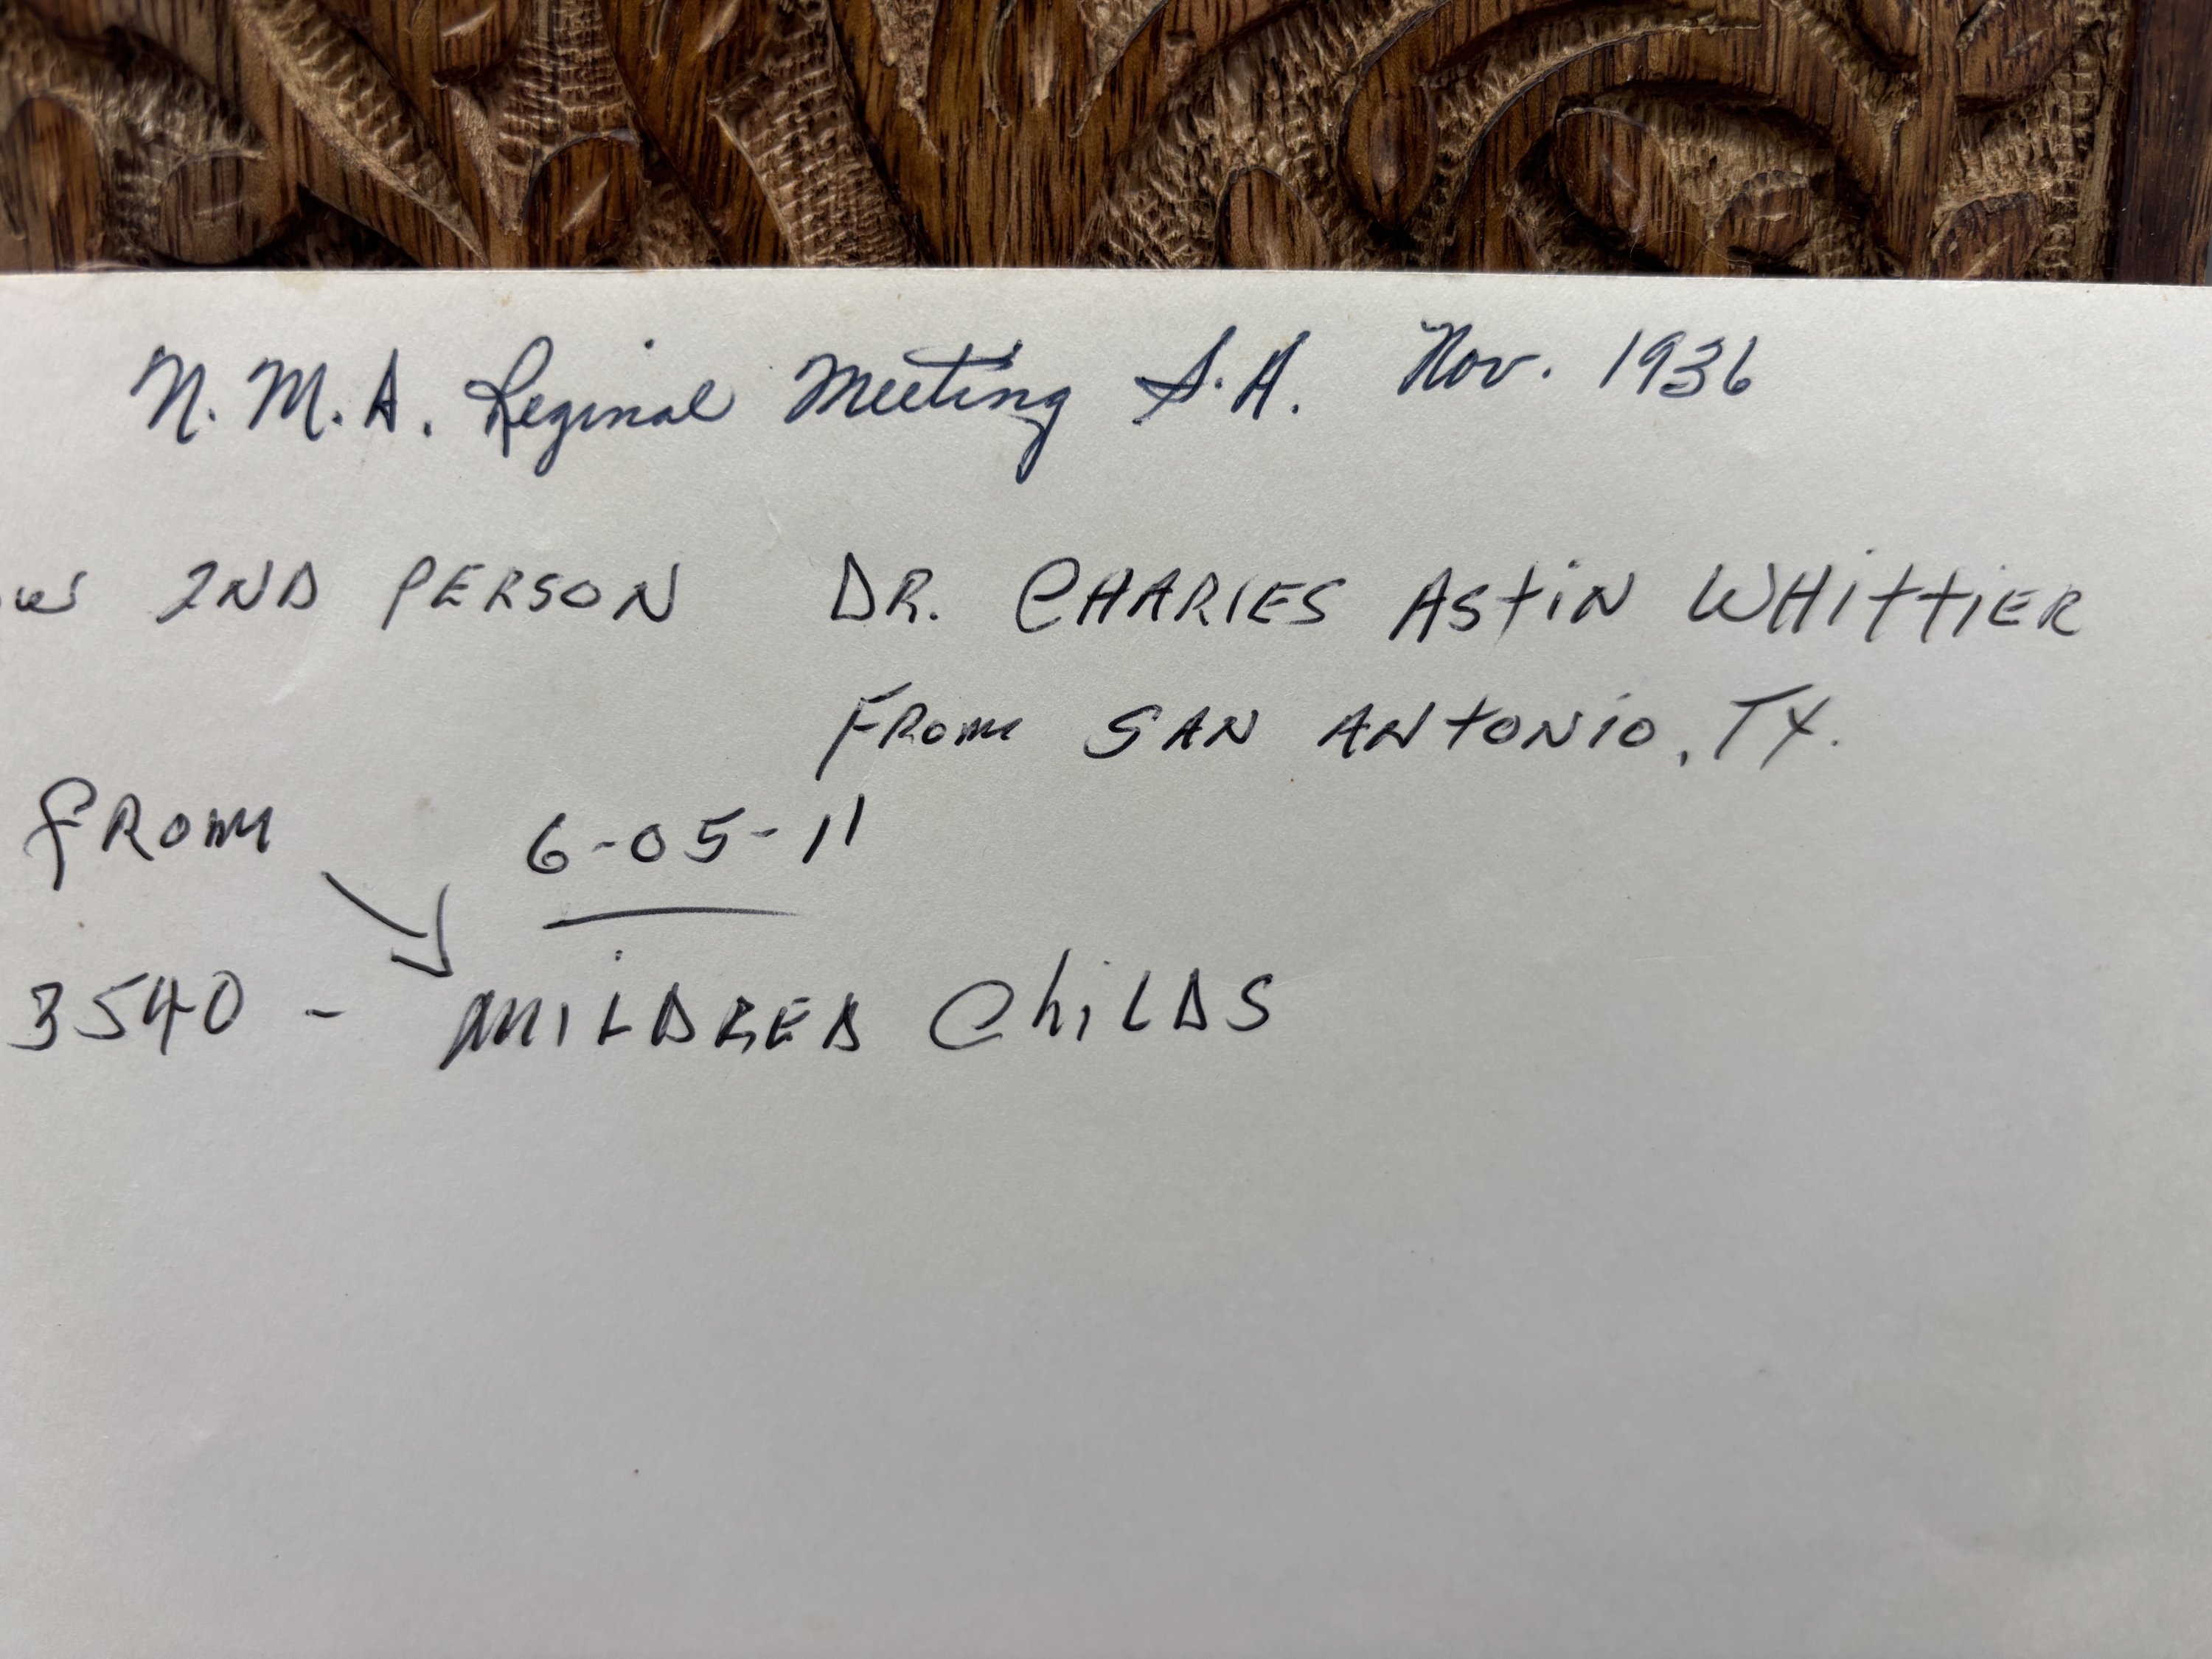 N.M.A. Reginal Meeting S.A. Nov. 1936
2ND PERSON DR. CHARLES ASTIN WHITTIER
FROM SAN ANTONIO, TX.
FROM 6-05-11
3540 - MILDRED CHILDS